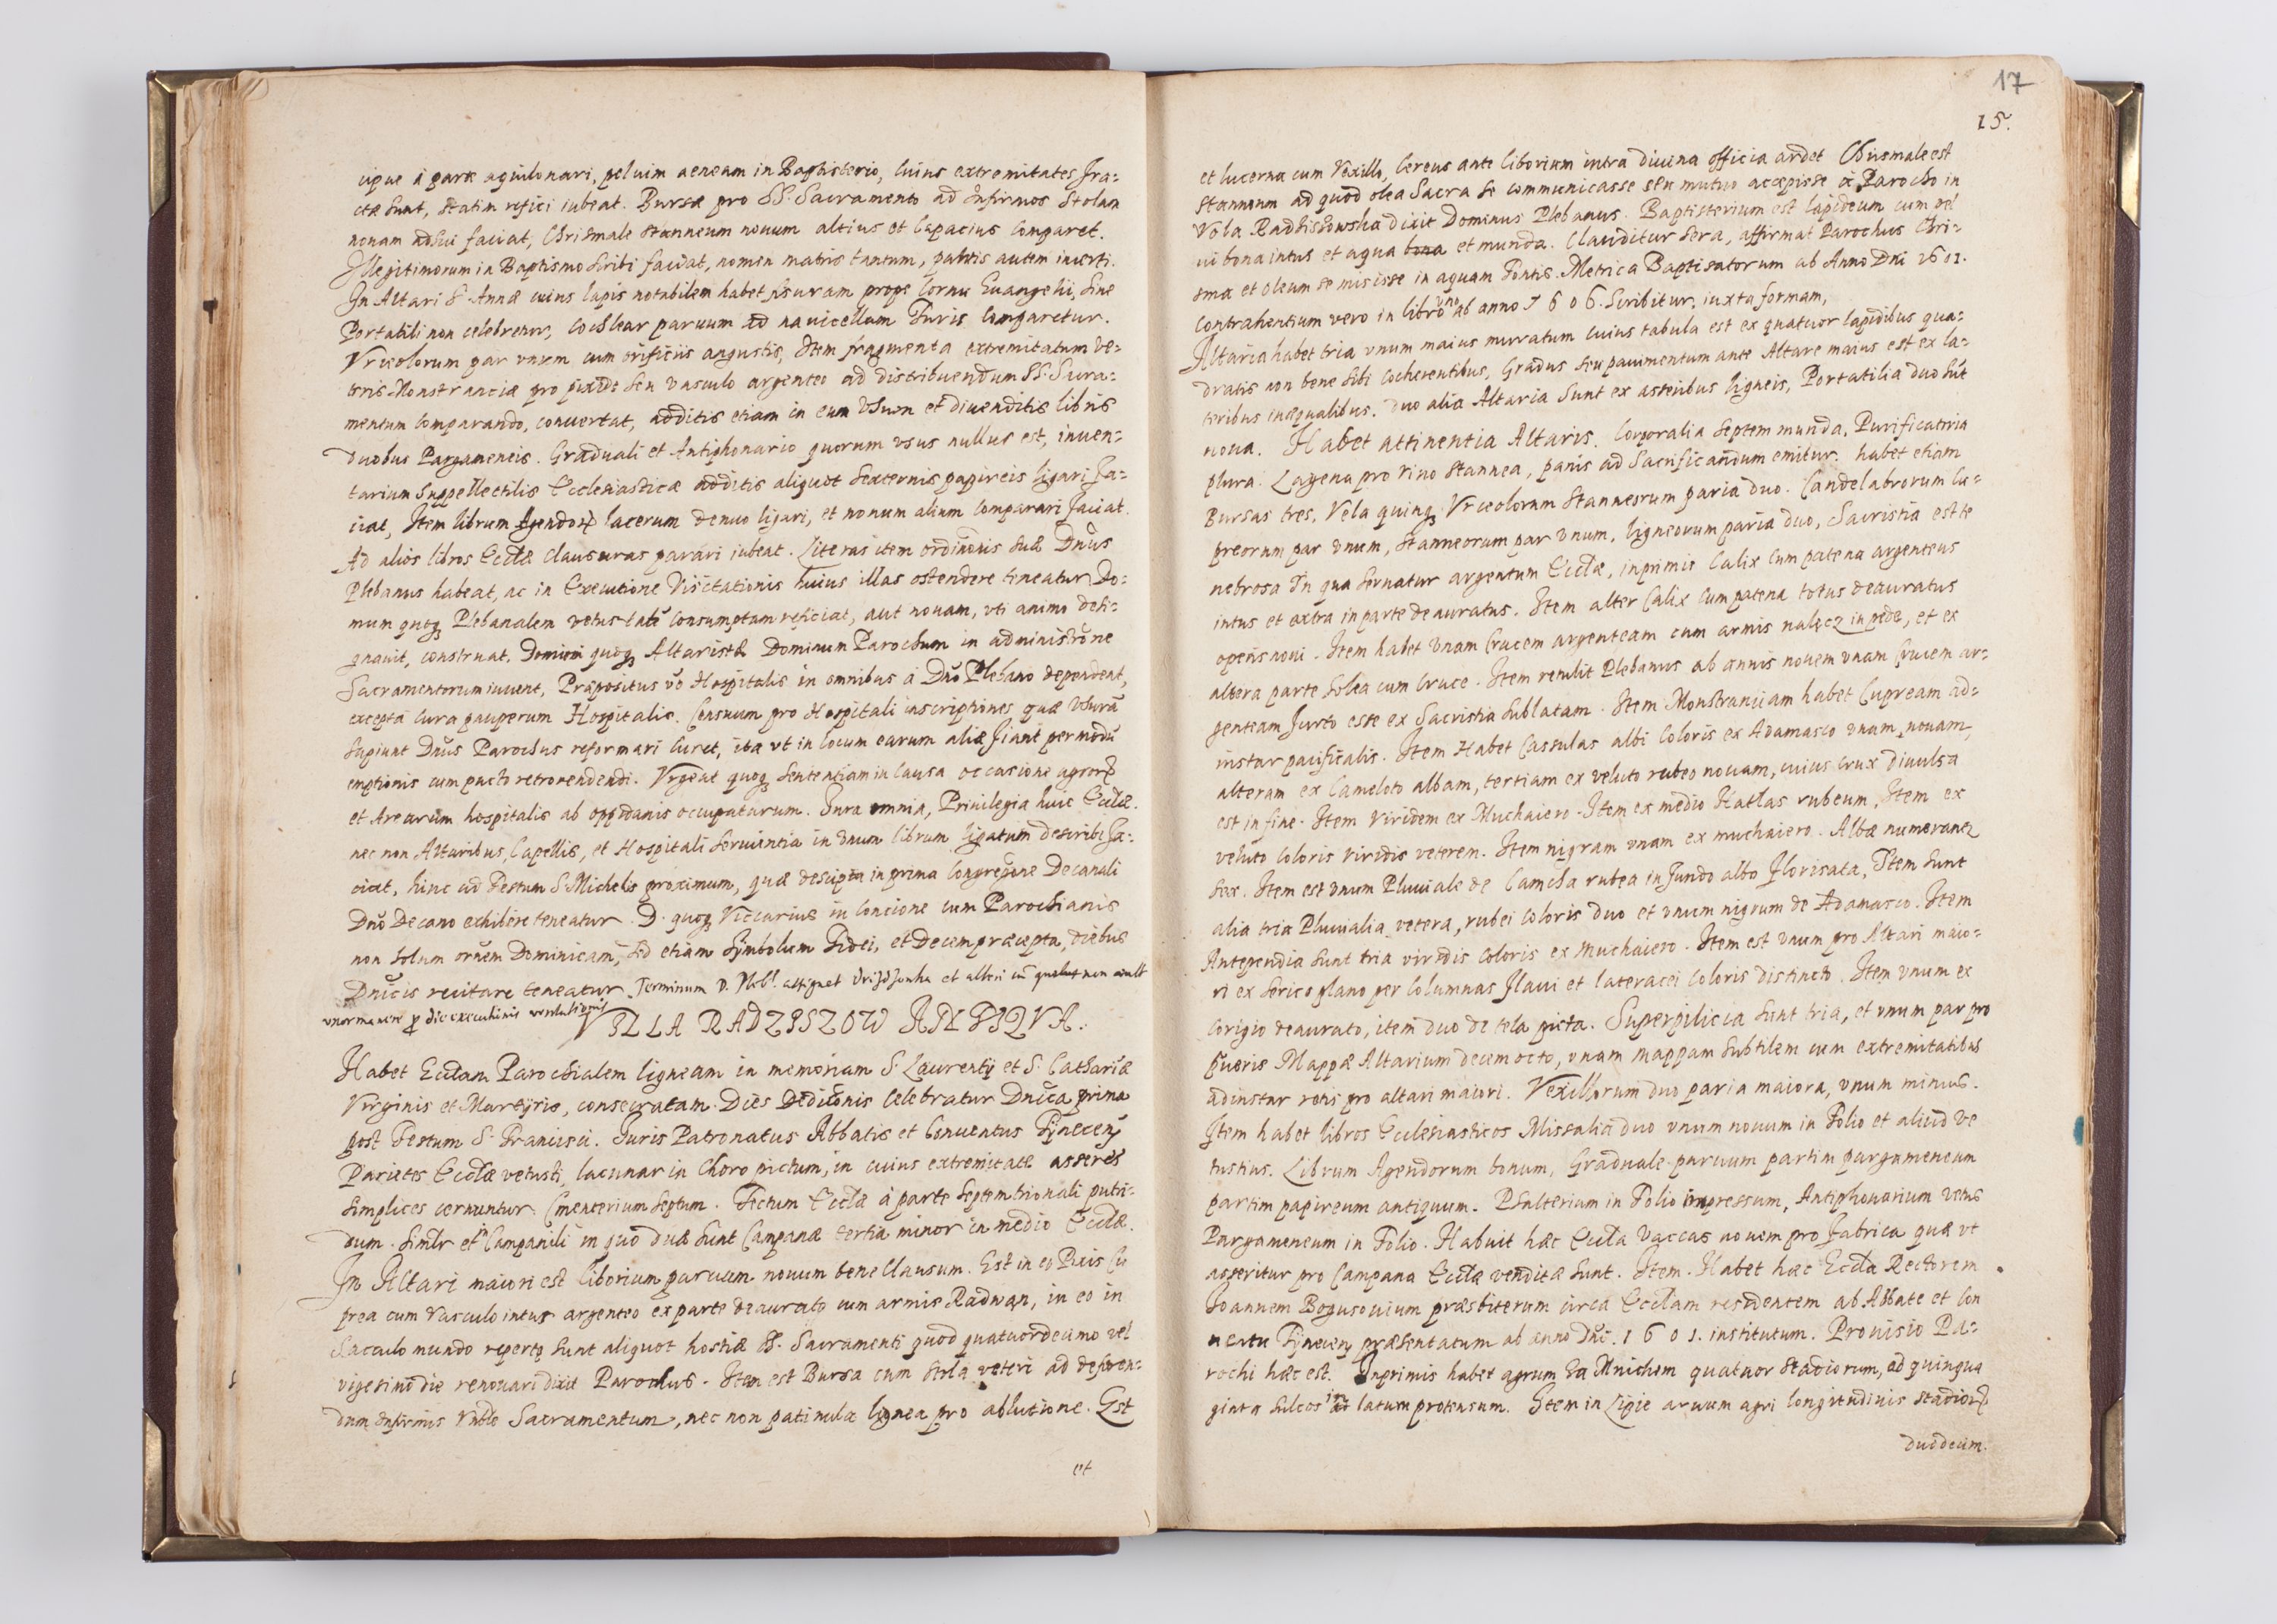 cipue à parte aquilonari, peluim aeneam in Baptisterio, cuius extremitates fra-
ctæ sunt, statim refici iubeat. Bursæ pro SS. Sacramento ad Infirmos Stolam
nouam adsui faciat, Chrismale stanneum nouum altius et capacius comparet.
Illegitimorum in Baptismo scribi faciat, nomen matris tantum, patris autem incerti.
In Altari S. Annæ cuius lapis notabilem habet fisuram prope cornu Euangelii, sine
Portatili non celebretur, cochlear paruum ad nauicellam Turis comparetur.
Vrceolorum par vnum cum orificiis angustis, Item fragmenta extremitatum ve-
teris Monstranciæ pro pixide seu vasculo argenteo ad distribuendum SS. Sacra-
mentum comparando, conuertat, additis etiam in eum vsum et diuenditis libris
duobus Pargameneis. Graduali et Antiphonario quorum vsus nullus est, inuen-
tarium suppellectilis Ecclesiasticæ additis aliquot sexternis papireis ligari fa-
ciat, Item librum Agendorum lacerum denuo ligari, et nouum alium comparari faciat.
Ad alios libros Eccłæ clausuras parari iubeat. Literas item ordinonis suæ Dnus
Plebanus habeat, ac in Executione Visitationis huius illas ostendere teneatur. Do-
mum quoq Plebanalem vetustate consumptam reficiat, aut nouam, vti animo desi-
gnauit, construat. Domini quoq Altaristæ Dominum Parochum in administraone
Sacramentorum iuuent, Præpositus vo Hospitalis in omnibus à Dno Plebano dependent,
excepta cura pauperum Hospitalis. Censuum pro Hospitali inscriptiones quæ vsurã
sapiunt Dnus Parochus reformari curet, ita vt in locum earum aliæ fiant per modũ
emptionis cum pacto retrovendendi. Vrgeat quoq sententiam in causa occasione agrorum
et Arearum hospitalis ab oppidanis occupatarum. Iura omnia, Priuilegia huic Eccłæ.
nec non Altaribus, Capellis, et Hospitali seruientia in vnum librum ligatum describi fa-
ciat, hinc ad Festum S. Michelis proximum, quæ descripta in prima Congregaone Decanali
Dno Decano exhibere teneatur. D. quoq Viccarius in concione cum Parochianis
non solum orñem Dominicam, sed etiam Symbolum Fidei, et Decem præcepta, diebus
Dnicis recitare teneatur. Terminum D. Nobl. assignet et alteri cũ qua non vult
pro die executionis
VILLA RADZISZOW ANTIQVA.
Habet Eccłam Parochialem ligneam in memoriam S. Laurentij et S. Cathariæ
Virginis et Martyris, consecratam. Dies Dedicaonis celebratur Dnica prima
post Festum S. Francisci. Iuris Patronatus Abbatis et Conuentus Tynecen
Parietes Eccłæ vetusti, lacunar in Choro pictum, in cuius extremitate asseres
simplices cernuntur. Cmenterium septum. Tectum Eccłæ à parte Septemtrionali putri-
dum. Simlr et in Campanili in quo duæ sunt Campanæ tertia minor in medio Eccłæ.
In Altari maiori est Ciborium paruum nouum bene clausum. Est in eo Pixis Cu
prea cum vasculo intus argenteo ex parte deaurato cum armis Radwan, in eo in
Sacculo mundo repertę sunt aliquot hostiæ SS. Sacramenti quod quatuordecimo vel
vigesimo die renouari dixit Parochus. Item est Bursa cum stola veteri ad deferen-
dum Infirmis Vnble Sacramentum, nec non patinula lignea pro ablutione. Est
et
17
15.
et lucerna cum Vexillo, Cereus ante Ciborium intra diuina officia ardet Chrismale est
stanneum ad quod olea sacra se communicasse seu mutuo accepisse à Parocho in
Vola Radzissowska dixit Dominus Plebanus. Baptisterium est lapideum cum vel
ui bona intus et aqua bona et munda. Clauditur sera, affirmat Parochus Chri-
sma et oleum se misisse in aquam Fontis. Metrica Baptisatorum ab Anno Dni 1601.
Contrahentium vero in libro vno ab anno 1606. Scribitur, iuxta formam,
Altaria habet tria vnum maius murratum cuius tabula est ex quatuor lapidibus qua-
dratis non bene sibi cocherentibus, Gradus seu pauimentum ante Altare maius est ex la-
teribus inæqualibus. Duo alia Altaria sunt ex asseribus ligneis, Portatilia duo sũt
noua. Habet attinentia Altaris. Corporalia septem munda, Purificatoria
plura. Lagena pro vino stannea, panis ad Sacrificandum emitur. habet etiam
Bursas tres, Vela quinq Vrceolorum stanneorum paria duo. Candelabrorum cu-
preorum par vnum, stanneorum par vnum, ligneorum paria duo, Sacristia est te
nebrosa In qua seruatur argentum Eccłæ, inprimis Calix cum patena argenteus
intus et extra in parte deauratus. Item alter Calix cum patena totus deauratus
operis noui. Item habet vnam Crucem argenteam cum armis nalęcz in pede, et ex
altera parte Solea cum cruce. Item retulit Plebanus ab annis nouem vnam Crucem ar-
genteam furto esse ex Sacristia sublatam. Item Monstranciam habet Cupream ad-
instar pacificalis. Item Habet Cassulas albi coloris ex Adamasco vnam nouam,
alteram ex Cameloto albam, tertiam ex veluto rubeo nouam, cuius crux diuulsa
est in fine. Item viridem ex Muchaiero. Item ex medio Hatlas rubeum, Item ex
veluto coloris viridis veterem. Item nigram vnam ex muchaiero. Albæ numerantr
sex. Item est vnum Pluuiale de Camcha rubea in fundo albo florisata, Item sunt
alia tria Pluuialia vetera, rubei coloris duo et vnum nigrum de Adamasco. Item
Antependia sunt tria viridis coloris ex muchaiero. Item est vnum pro Altari maio-
ri ex serico plano per columnas flaui et lateracei coloris distincto. Item vnum ex
Corigio deaurato, item duo de tela picta. Superpilicia sunt tria, et vnum par pro
pueris Mappæ Altarium decem octo, vnam mappam subtilem cum extremitatibus
adinstar retis pro altari maiori. Vexillorum duo paria maiora, vnum minus.
Item habet libros Ecclesiasticos Missalia duo vnum nouum in Folio et aliud ve
tustius. Librum Agendorum bonum, Graduale paruum partim pargameneum
partim papireum antiquum. Psalterium in Folio impressum, Antiphonarium vetus
Pargameneum in Folio. Habuit hæc Eccła Vaccas nouem pro Fabrica quæ vt
asseritur pro Campana Eccłæ venditæ sunt. Item. Habet hæc Eccła Rectorem
Joannem Bogusouium præsbiterum circa Eccłam residentem ab Abbate et Con
uentu Tynecen præsentatum ab anno Dni. 1601. institutum. Prouisio Pa-
rochi hæc est. Inprimis habet agrum Za Mnichem quatuor stadiorum, ad quinqua
ginta sulcos in latum protensum. Item in Ligie aruum agri longitudinis stadiorum
duodecim.